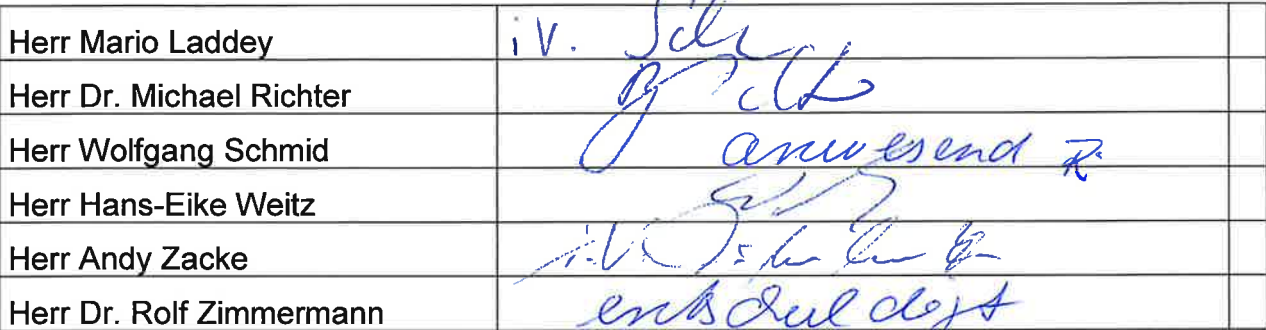 Herr Mario Laddey i.V.
Herr Dr. Michael Richter
Herr Wolfgang Schmid anwesend
Herr Hans-Eike Weitz
Herr Andy Zacke i.V.
Herr Dr. Rolf Zimmermann entschuldigt